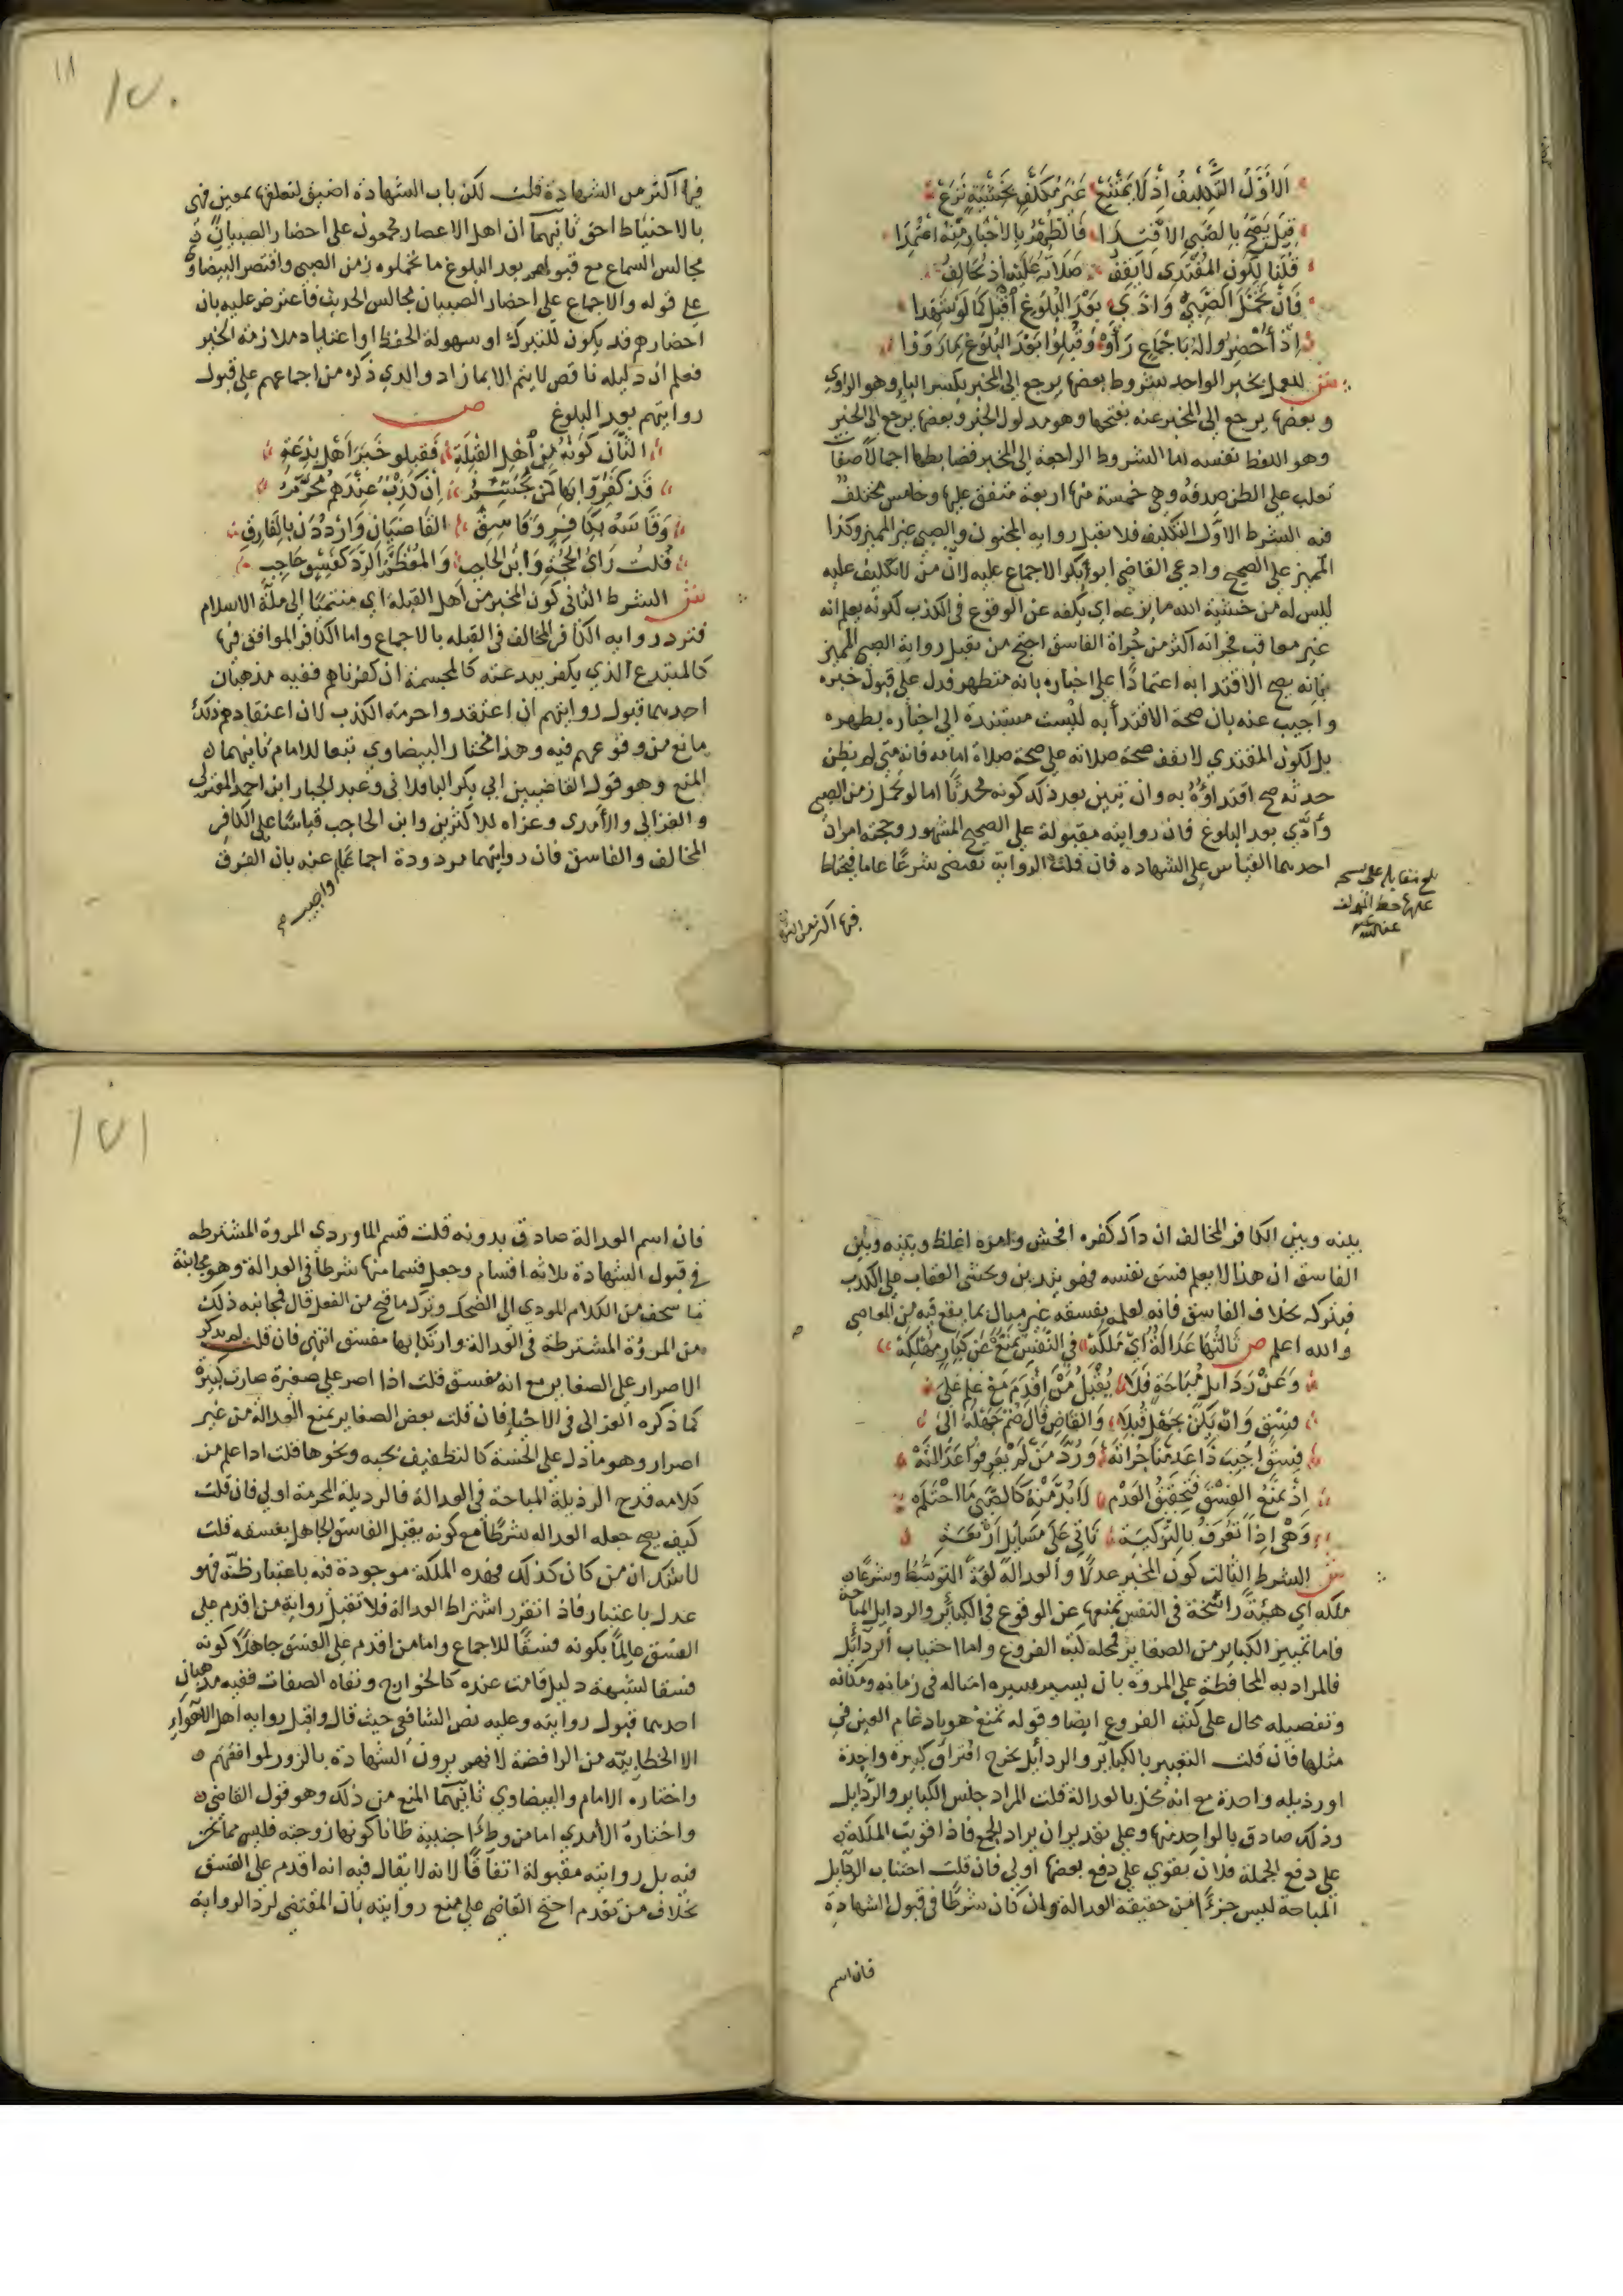 الأَوَّلُ التَّكْلِيفُ إِذْ لَا يَمْتَنِعْ غَيْرُ مُكَلَّفٍ بِخَشْيَةٍ تَزَعْ
قِيلَ يَصِحُّ بِالصَّبِيِّ الاقْتِدَا فَالطُّهْرُ بِالأَخْبَارِ مِنْهُ اعْتُمِدَا
قُلْنَا لِكَوْنِ الْمُقْتَدِي لَا يَقِفُ صَلَاتُهُ عَلَيْهِ إِذْ تُخَالِفُ
فَإِنْ تَحَمَّلَ الصَّبِيُّ وَادَّى بَعْدَ الْبُلُوغِ اقْبَلْ كَمَا لَوْ شَهِدَا
إِذْ أُحْضِرُوا لَهُ بِاجْمَاعٍ رَأَوْهُ وَقُبِلُوا بَعْدَ الْبُلُوغِ بِمَا رَوَوْا
ش للعمل بخبر الواحد شروط بعضها يرجع الى المخبر بكسر الباء وهو الراوي
وبعضها يرجع الى المخبر عنه بفتحها وهو مدلول الخبر وبعضها يرجع الى الخبر
وهو اللفظ نفسه اما الشروط الراجعة الى المخبر فضابطها اجمالا صفات
تغلب على الظن صدقه وهي خمسة منها اربعة متفق عليها وخامس مختلف
فيه الشرط الاول التكليف فلا تقبل رواية المجنون والصبي غير المميز وكذا
المميز على الصحيح وادعى القاضي ابو بكر الاجماع عليه لان من لا تكليف عليه
ليس له من خشية الله ما يزعه اي يكفه عن الوقوع في الكذب لكونه يعلم انه
غير معاقب فجراته اكثر من جراة الفاسق احتج من يقبل رواية الصبي المميز
بانه يصح الاقتدا به اعتمادا على اخباره بانه متطهر فدل على قبول خبره
واجيب عنه بان صحة الاقتدا به ليست مستندة الى اخباره بطهره
بل لكون المقتدي لا يقف صحة صلاته على صحة صلاة امامه فانه متى لم يظن
حدثه صح اقتداؤه به وان تبين بعد ذلك كونه محدثا اما لو تحمل زمن الصبى
وأدّي بعد البلوغ فان روايته مقبولة على الصحيح المشهور وحجته امران
احدهما القياس على الشهاده فان قلت الرواية تقتضى شرعا عاما فيحتاط
بلغ مقابلة على نسخة
عليها خط المولف
عفا الله عنه
فيها اكثر من الشهادة
فيها اكثر من الشهادة قلت لكن باب الشهادة اضيق لتعلقها بمعين فهى
بالاحتياط احق ثانيهما ان اهل الاعصار مجمعون على احضار الصبيان
مجالس السماع مع قبولهم بعد البلوغ ما تحملوه زمن الصبى واقتصر البيضاوي
على قوله والاجماع على احضار الصبيان مجالس الحديث فاعترض عليه بان
احضارهم قد يكون للتبرك او سهولة الحفظ او اعتياد ملازمة الخير
فعلم ان دليله ناقص لا يتم الا بما زاد والدي ذكره من اجماعهم على قبول
روايتهم بعد البلوغ ص
الثَّانِ كَوْنُهُ مِنْ أَهْلِ الْقِبْلَةِ فَقَبِلُوا خَبَرَ أَهْلِ بِدْعَةِ
قَدْ كُفِّرُوا بِهَا كَمَنْ يُجَسِّمُ إِنْ كَذِبٌ عِنْدَهُمُ مُحَرَّمُ
وَقَاسَهُ بِكَافِرٍ وَفَاسِقِ القَاضِيَانِ وَارْدُدَنْ بِالفَارِقِ
قُلْتُ رَأَى الحُجَّةُ وَابْنُ الحَاجِبِ وَالمُعْظَمُ الرَّدَّ كَفِسْقٍ حَاجِبِ
ش الشرط الثانى كون المخبر من اهل القبلة اي منتميا الى ملة الاسلام
فترد رواية الكافر المخالف فى القبله بالاجماع واما الكافر الموافق فيها
كالمبتدع الذي يكفر ببدعته كالمجسمة ان كفرناهم ففيه مذهبان
احدهما قبول روايتهم ان اعتقدوا حرمة الكذب لان اعتقادهم ذلك
مانع من وقوعهم فيه وهذا مختار البيضاوي تبعا للامام ثانيهما
المنع وهو قول القاضيين ابي بكر الباقلانى وعبد الجبار ابن احمد المعتزلي
والغزالى والآمدى وعزاه للاكثرين وابن الحاجب قياسا على الكافر
المخالف والفاسق فان روايتهما مردودة اجماعا واجيب عنه بان الفرق
بينه وبين الكافر المخالف ان ذاك كفره افحش وامره اغلظ وبينه وبين
الفاسق ان هذا لا يعلم فسق نفسه فهو يتدين ويخشى العقاب على الكذب
فيتركه بخلاف الفاسق فانه لعلمه بفسقه غير مبال بما يقع فيه من المعاصي
والله اعلم ص ثَالِثُهَا عَدَالَةٌ أَيْ مَلَكَهْ فِي النَّفْسِ تَمْنَعُ عَنْ كِبَارٍ مُهْلِكَهْ
وَعَنْ رَذَايِلَ مُبَاحَةٍ فَلَا يُقْبَلُ مَنْ أَقْدَمَ مَعْ عِلْمٍ عَلَى
فِسْقٍ وَانْ يَكُنْ بِجَهْلٍ قُبِلَا وَالقَاضِ قَالَ ضُمَّ جَهْلَهُ إِلَى
فِسْقٍ أُجِيبَ ذَا عَدِمْنَا جُرْاتَهْ وَرُدَّ مَنْ لَمْ يَعْرِفُوا عَدَالَتَهْ
إِذْ يَمْنَعُ الفِسْقُ فَتَحْقِيقُ العَدَمْ لَا بُدَّ مِنْهُ كَالصَّبِيْ مَا احْتَلَمْ
وَهْيَ إِذًا تُعْرَفُ بِالتَّزْكِيَةِ تَأْتِي عَلَى مَسَايِلَ أَرْبَعَةِ
ش الشرط الثالث كون المخبر عدلا والعدالة لغة التوسط وشرعا
ملكه اي هيئة راسخة فى النفس تمنعها عن الوقوع فى الكبائر والرذايل المباحة
فاما تمييز الكباير من الصغاير فمحله كتب الفروع واما اجتناب الرذائل
فالمراد به المحافظة على المروة بان يسير بسيرة امثاله فى زمانه ومكانه
وتفصيله محال على كتب الفروع ايضا وقوله تمنع هو بادغام العين في
مثلها فان قلت التعبير بالكبائر والرذائل يخرج اقتراف كبيرة واحدة
او رذيله واحدة مع انه مخل بالعدالة قلت المراد جنس الكباير والرذايل
وذلك صادق بالواحد منها وعلى تقدير ان يراد الجمع فاذا قويت الملكة
على دفع الجملة فلان تقوى على دفع بعضها اولى فان قلت اجتناب الرذايل
المباحة ليس جزءا من حقيقة العدالة وان كان شرطا فى قبول الشهادة
فان اسم
فان اسم العدالة صادق بدونه قلت قسم الماوردي المروة المشترطه
فى قبول الشهادة ثلاثة اقسام وجعل قسما منها شرطا فى العدالة وهو مجانبة
ما سخف من الكلام المودي الى الضحك وترك ما قبح من الفعل قال فمجانبة ذلك
من المروة المشترطة فى العدالة وارتكابها مفسق انتهى فان قلت لم يذكر
الاصرار على الصغاير مع انه مفسق قلت اذا اصر على صغيرة صارت كبيرة
كما ذكره الغزالى فى الاحياء فان قلت بعض الصغاير يمنع العدالة من غير
اصرار وهو ما دل على الخسة كالتطفيف بحبه ونحوها قلت اذا علم من
كلامه قدح الرذيلة المباحة فى العدالة فالرذيلة المحرمة اولى فان قلت
كيف يصح جعله العداله شرطا مع كونه يقبل الفاسق الجاهل بفسقه قلت
لا شك ان من كان كذلك فهذه الملكة موجودة فيه باعتبار ظنه فهو
عدل باعتبار فاذا تقرر اشتراط العدالة فلا تقبل رواية من اقدم على
الفسق عالما بكونه فسقا للاجماع واما من اقدم على الفسق جاهلا كونه
فسقا لشبهة دليل قامت عنده كالخوارج ونفاة الصفات ففيه مذهبان
احدهما قبول روايته وعليه نص الشافعي حيث قال واقبل رواية اهل الاهواء
الا الخطابية من الرافضة لانهم يرون الشهادة بالزور لموافقهم
واختاره الامام والبيضاوي ثانيهما المنع من ذلك وهو قول القاضي
واختاره الآمدي اما من وطئ اجنبية ظانا كونها زوجته فليس مما نحن
فيه بل روايته مقبولة اتفاقا لانه لا يقال فيه انه اقدم على الفسق
بخلاف من تقدم احتج القاضي على منع روايته بان المقتضى لرد الرواية